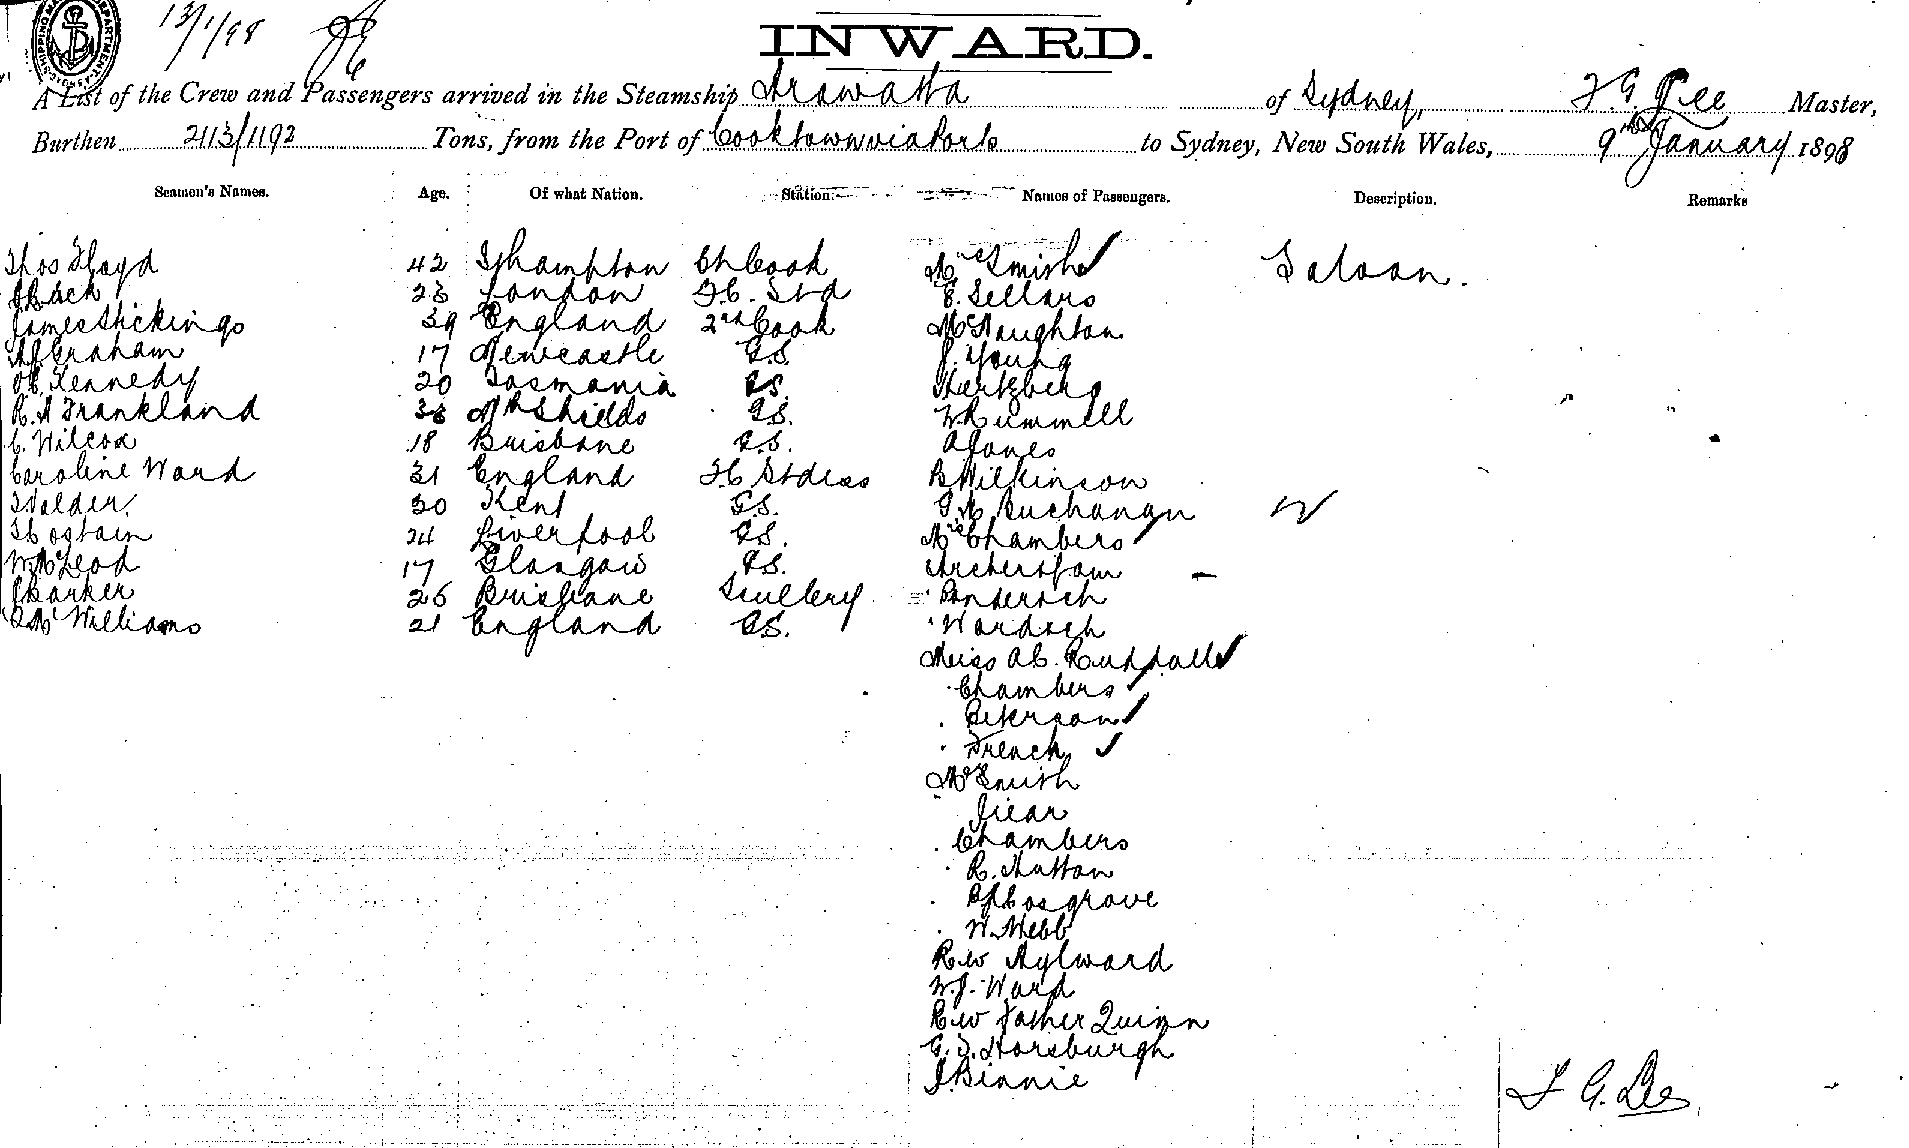 13/1/98
INWARD.
A List of the Crew and Passengers arrived in the Steamship Arawatta of Sydney, F. G. Lee Master,
Burthen 2113/1192 Tons, from the Port of Cooktown via Ports to Sydney, New South Wales, 9th January 1898
Seamen's Names. Age. Of what Nation. Station. Names of Passengers. Description. Remarks
Thos Floyd 42 S'hampton Ch Cook Mrs Smith Saloon.
J Back 23 London F.C. Std E. Sellars
James Stickings 39 England 2nd Cook McNaughton
Graham 17 Newcastle G.S. J. Young
Kennedy 20 Tasmania G.S. Hertzberg
R. A Frankland 38 Nth Shields G.S. W Rummell
C. Wilcox 18 Brisbane G.S. A Jones
Caroline Ward 31 England F.C Stdess B Wilkinson
30 Kent G.S. G. M. Buchanan
T Costain 24 Liverpool G.S. Mrs Chambers
W McLeod 17 Glasgow G.S.
J Barker 26 Brisbane Scullery
McWilliams 21 England G.S.
Miss A C.
Chambers
Peterson
French
Mr Smith
Chambers
R. Hutton
Cosgrove
W. Webb
Rev Aylward
W. J. Ward
Rev Father Quinn
G. S. Horsburgh
J Binnie
F G. Lee